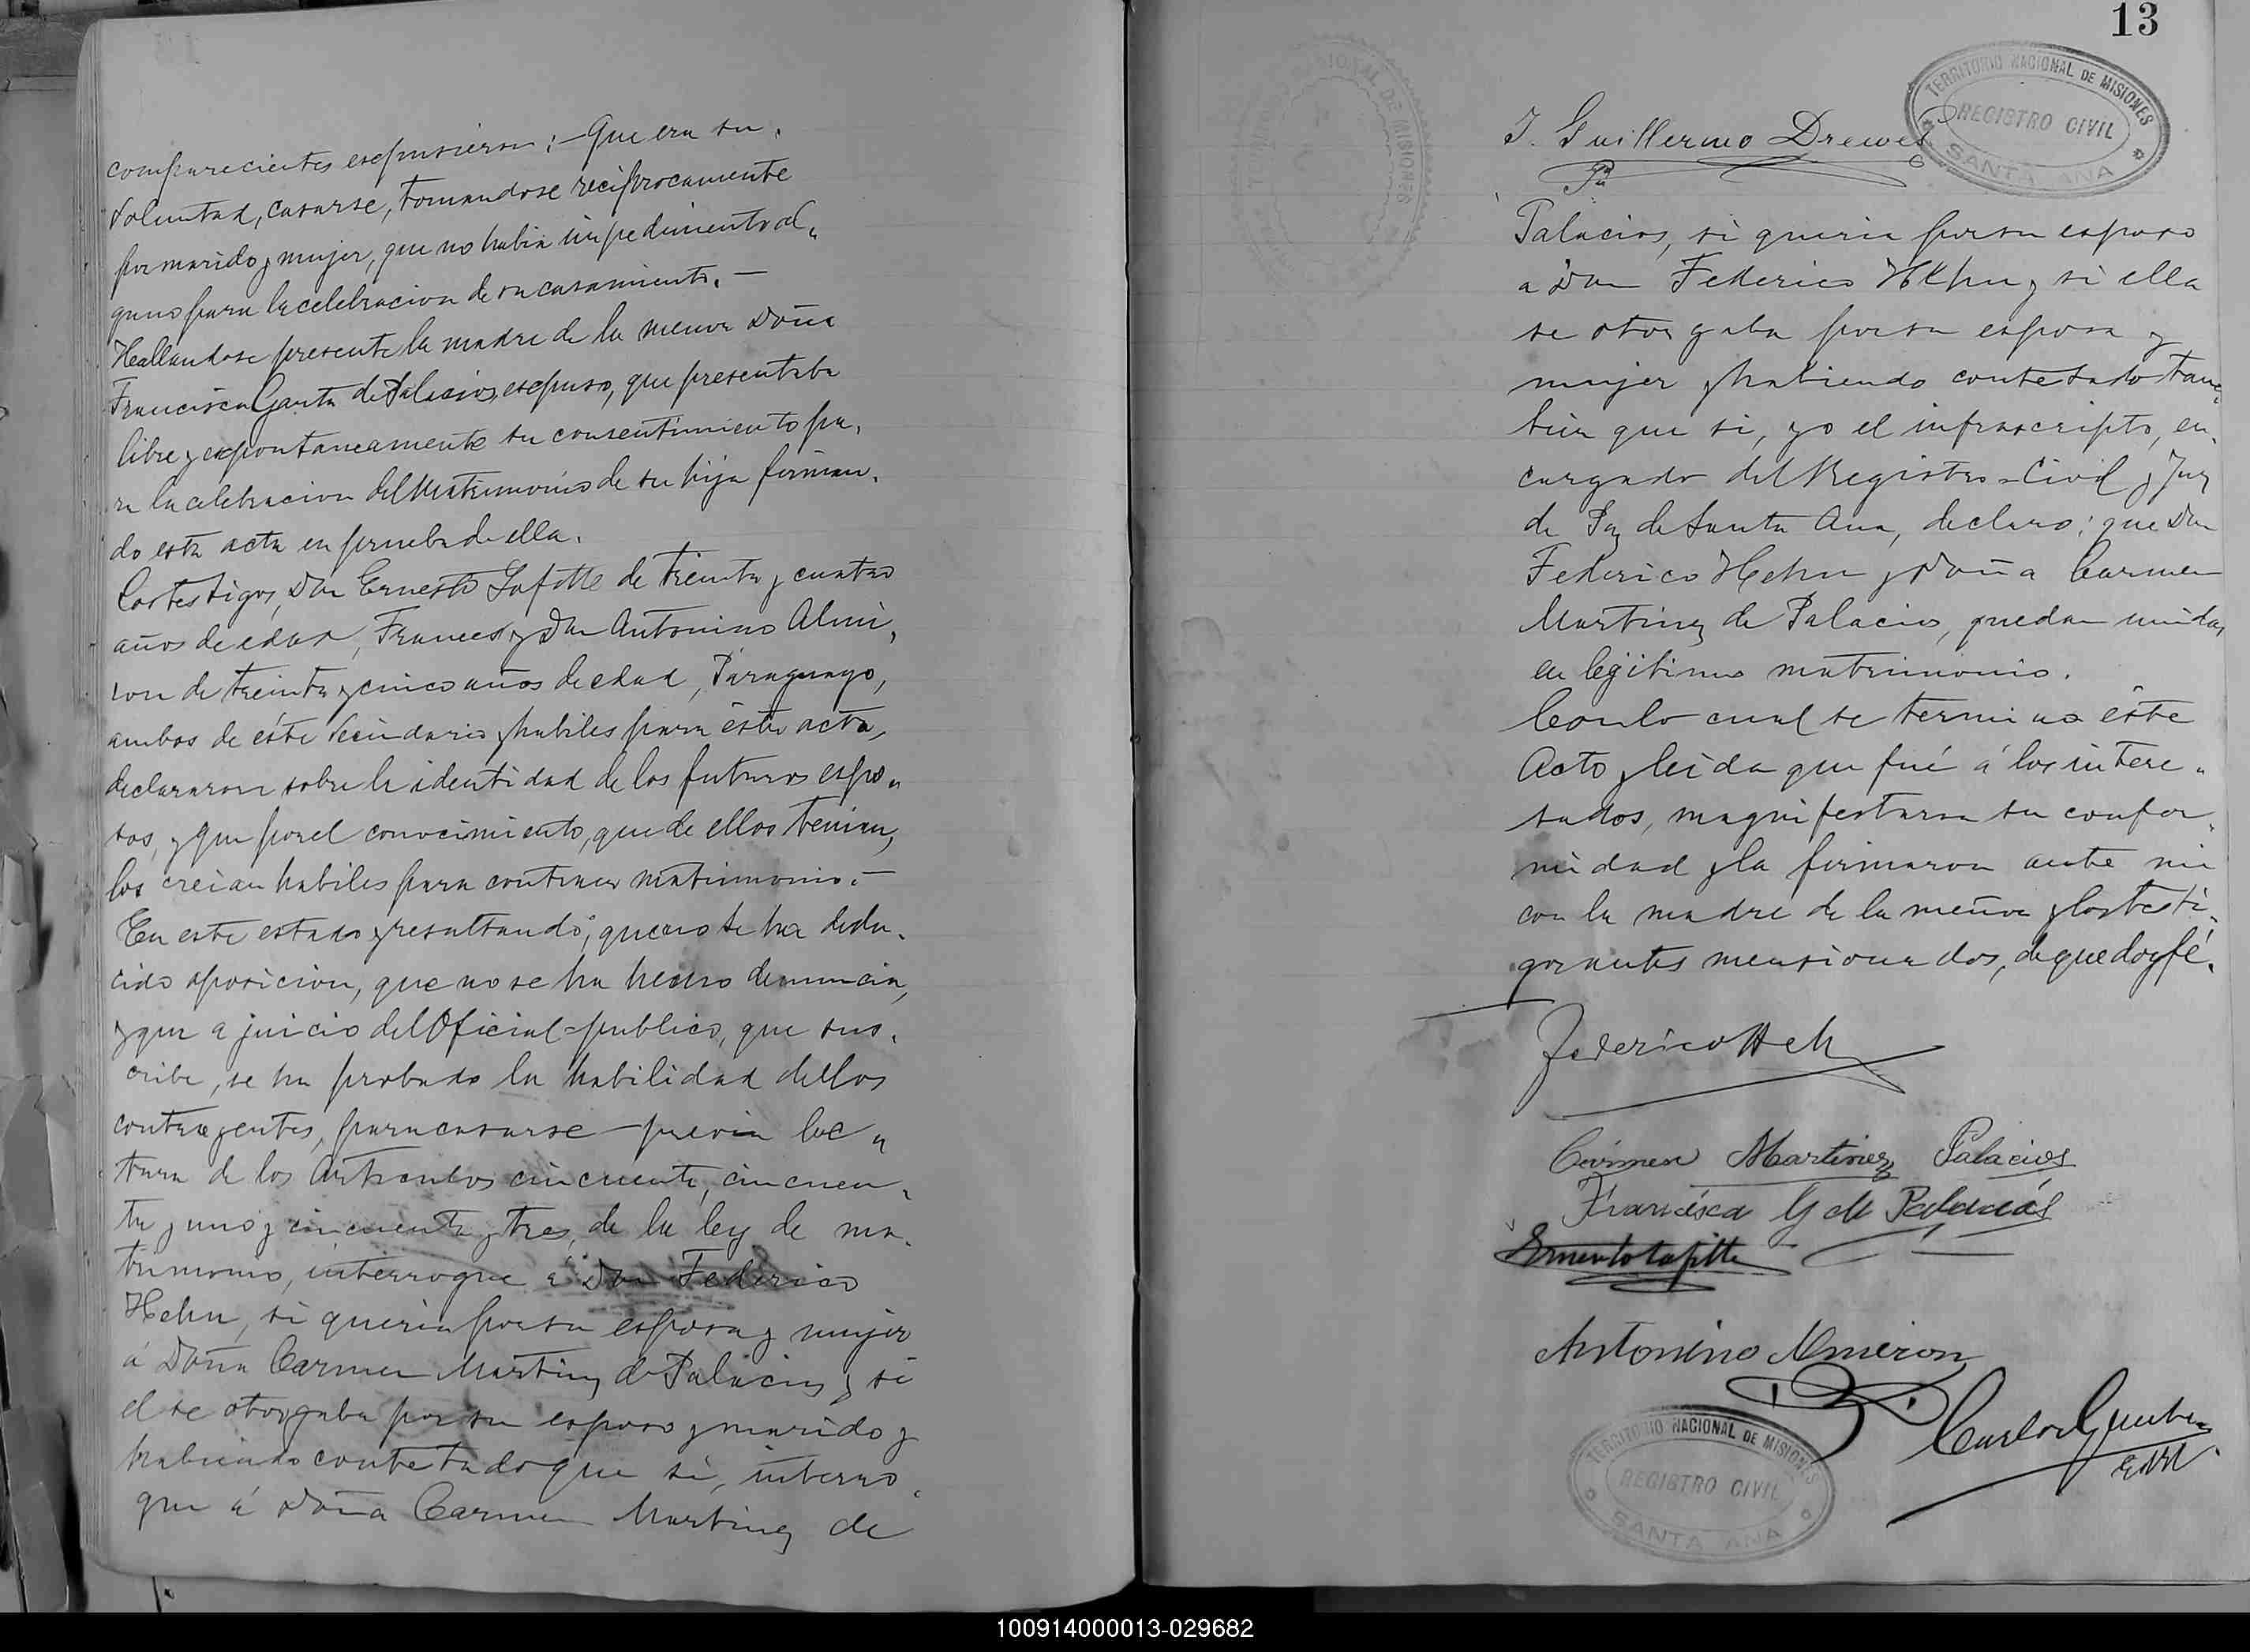 comparecientes espusieron :- Que era su,
voluntad, casarse, tomandose reciprocamente
por marido y mujer, que no habia impedimento al,,
guno para la celebracion de su casamiento. -
Hallandose presente la madre de la menor Doña
Francisca Gauta de Palacios, espuso, que presentaba
libre y espontaneamente su consentimiento pa,
ra la celebracion del Matrimonio de su hija firman,
do esta acta en prueba de ella.
Los testigos, Don Ernesto Lafitte de treinta y cuatro
años de edad, Frances y Don Antonino Almi,
ron de treinta y cinco años de edad, Paraguayo,
ambos de éste Vecindario y habiles para ésta acta,
declararon sobre la identidad de los futuros espo,,
sos, y que por el conocimiento, que de ellos tenian,
los creian habiles para contraer matrimonio. -
En este estado y resultando; que no se ha dedu,
cido oposicion, que no se ha hecho denuncia,
y que a juicio del Oficial=publico, que sus,
cribe, se ha probado la habilidad dellos
contrayentes, para casarse previa lec,,
tura de los Articulos cincuenta, cincuen,
ta y uno y cincuenta y tres, de la ley de ma,
trimonio, interrogue a Don Federico
Hehn, si queria por su esposa y mujer
á Doña Carmen Martinez de Palacios y si
el se otorgaba por su esposo y marido y
habiendo contestado que si, interro,
gue á Doña Carmen Martinez de
13
TERRITORIO NACIONAL DE MISIONES
REGISTRO CIVIL
SANTA ANA
J. Guillermo Drewes
Palacios, si queria por su esposo
a Don Federico Hehn y si ella
se otorgaba por su esposa y
mujer y habiendo contestado tam,
bien que si, yo el infrascripto, en,
cargado del Registro=Civil y Juez
de Paz de Santa Ana, declaro: que Don
Federico Hehn y Doña Carmen
Martinez de Palacios, quedan unidos
en legitimo matrimonio.
Con lo cual se termina éste
Acto y leida que fué á los intere,,
sados, magnifestaron su confor,
midad y la firmaron ante mi
con la madre de la menor y los testi,
gos antes mensionados, de que doy fé.
Federico Heh
Cármen Martinez Palacios
Francisca G de Palacios
Ernesto Lafitte
Antonino Almiron
Carlos
TERRITORIO NACIONAL DE MISIONES
REGISTRO CIVIL
SANTA ANA
100914000013-029682